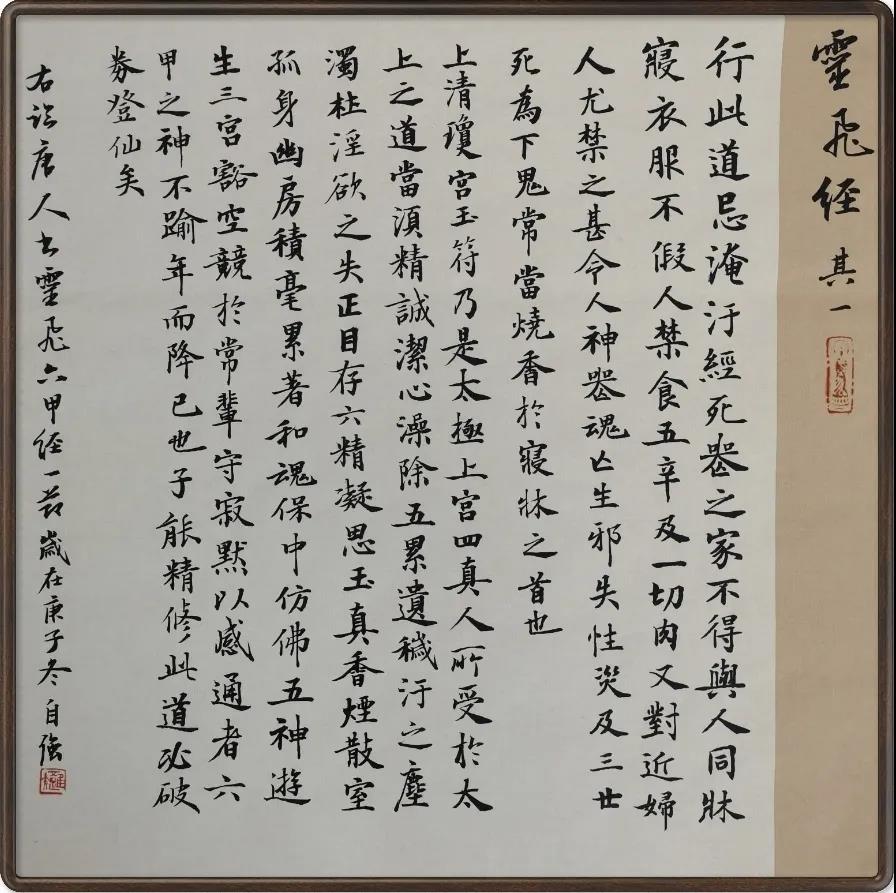 靈飛经 其一
行此道忌淹汙經死器之家不得與人同牀
寢衣服不假人禁食五辛及一切肉又對近婦
人尤禁之甚令人神器魂亡生邪失性災及三世
死為下鬼常當燒香於寢牀之首也
上清瓊宮玉符乃是太極上宮四真人所受於太
上之道當須精誠潔心澡除五累遺穢汙之塵
濁杜淫欲之失正目存六精凝思玉真香煙散室
孤身幽房積毫累著和魂保中仿佛五神遊
生三宮豁空競於常輩守寂默以感通者六
甲之神不踰年而降已也子能精修此道必破
券登仙矣
右临唐人书靈飛六甲经一节歲在庚子冬自强